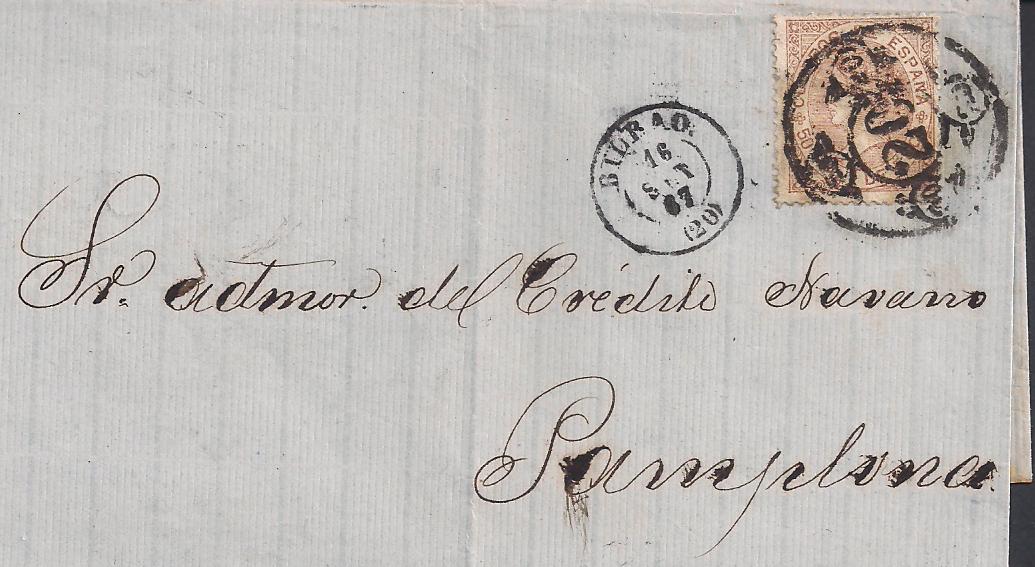 CORREOS ESPAÑA
50
20
BILBAO.
16
SET
67
(20)
Sr. admor. del Crédito Navarro
Pamplona.